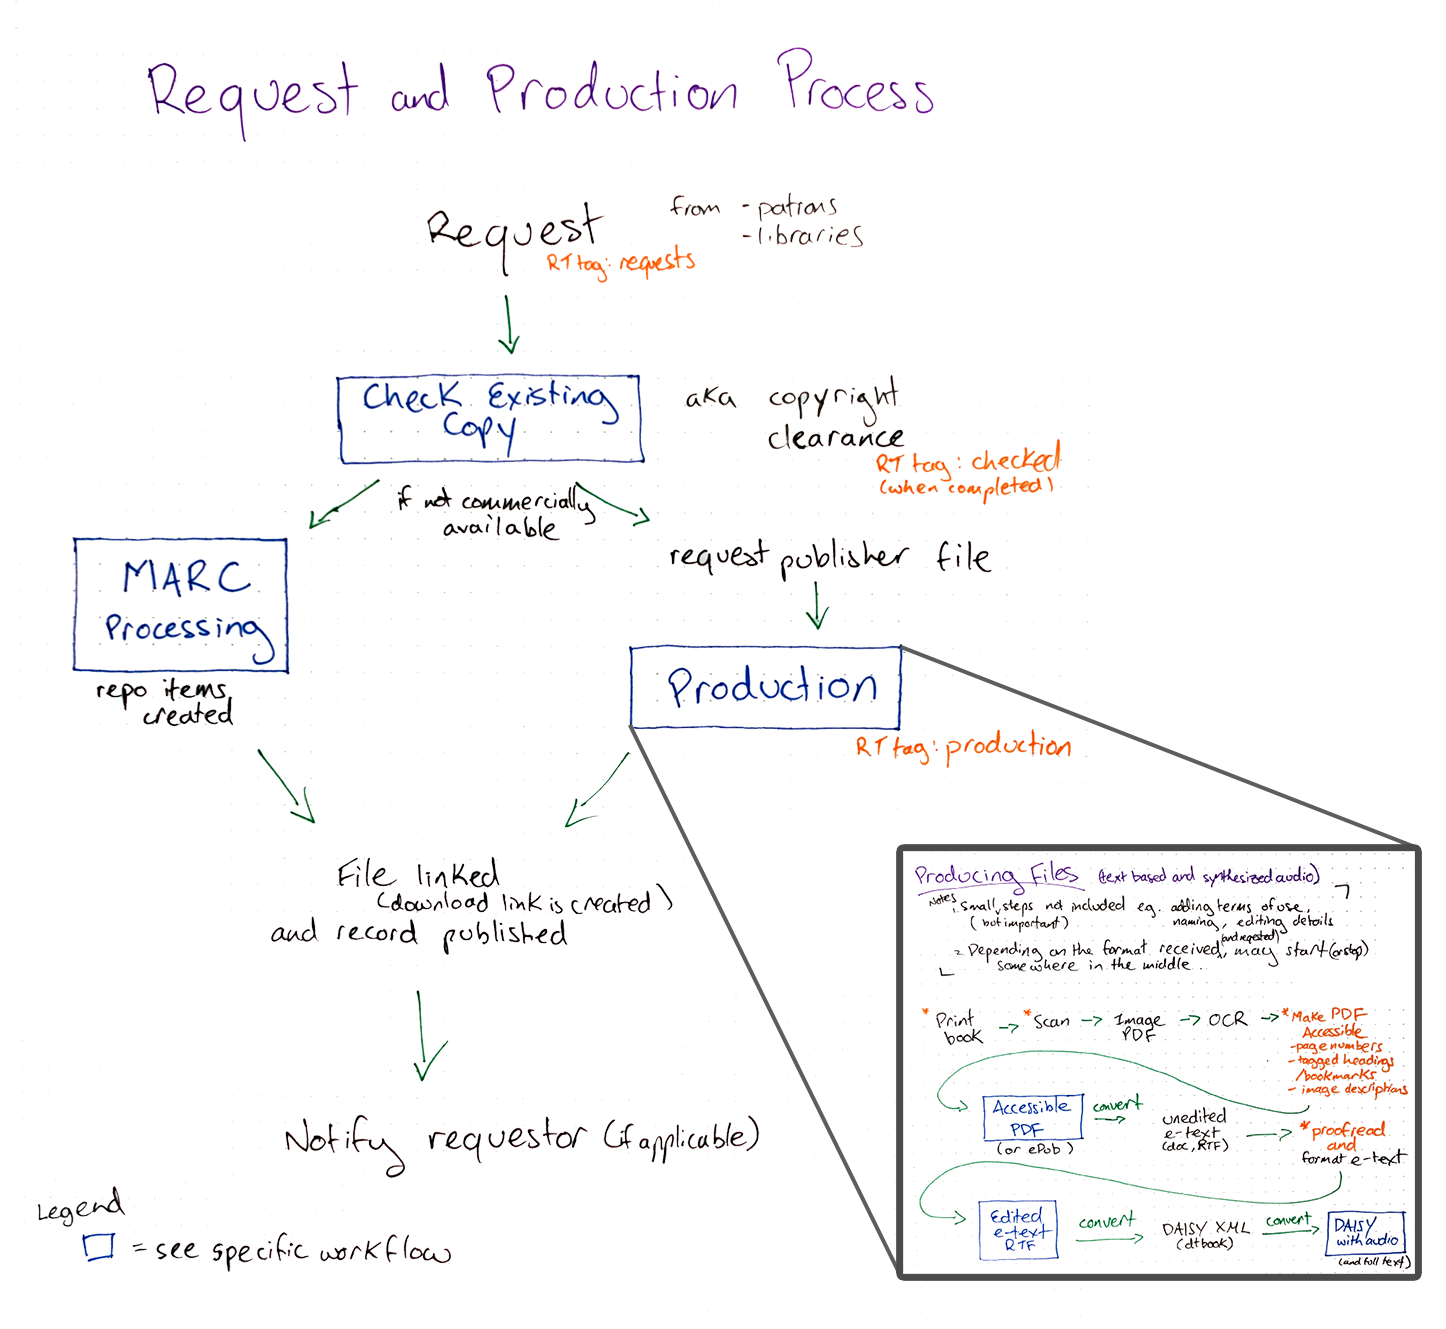 Request and Production Process
Request
from - patrons
- libraries
RT tag: requests
Check Existing
Copy
aka copyright
clearance
RT tag: checked
(when completed)
if not commercially
available
MARC
Processing
repo items
created
request publisher file
Production
RT tag: production
File linked
(download link is created)
and record published
Notify requestor (if applicable)
Legend
= see specific workflow
Producing Files (text based and synthesized audio)
Notes
1. Small steps not included e.g. adding terms of use,
(but important) naming, editing details
(and requested)
2. Depending on the format received, may start (or stop)
somewhere in the middle.
*Print
book
*Scan
Image
PDF
OCR
*Make PDF
Accessible
- page numbers
- tagged headings
/bookmarks
- image descriptions
Accessible
PDF
(or ePub)
convert
unedited
e-text
(doc, RTF)
*proofread
and
format e-text
Edited
e-text
RTF
convert
DAISY XML
(dtbook)
convert
DAISY
with audio
(and full text)